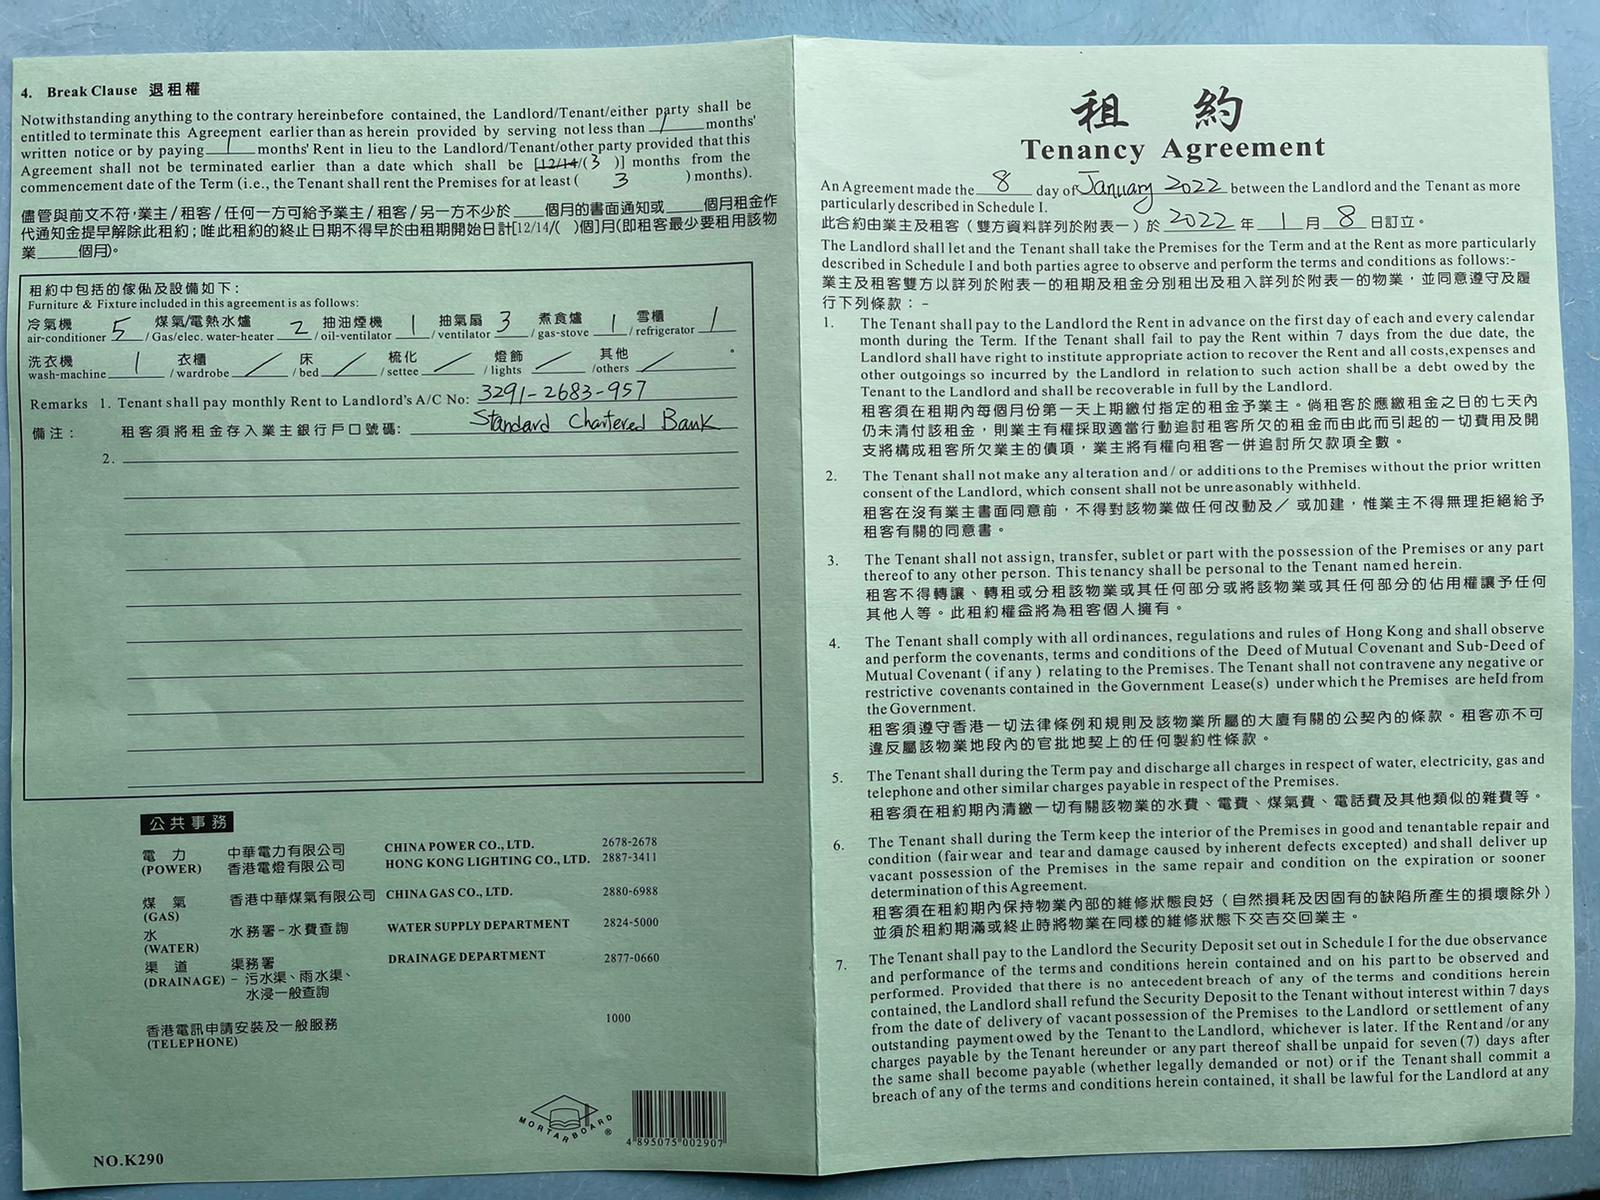 4. Break Clause 退租權
Notwithstanding anything to the contrary hereinbefore contained, the Landlord/Tenant/either party shall be
entitled to terminate this Agreement earlier than as herein provided by serving not less than 1 months'
written notice or by paying 1 months' Rent in lieu to the Landlord/Tenant/other party provided that this
Agreement shall not be terminated earlier than a date which shall be [12/14/(3 )] months from the
commencement date of the Term (i.e., the Tenant shall rent the Premises for at least ( 3 ) months).
儘管與前文不符,業主/租客/任何一方可給予業主/租客/另一方不少於____個月的書面通知或____個月租金作
代通知金提早解除此租約;唯此租約的終止日期不得早於由租期開始日計[12/14/( )個]月(即租客最少要租用該物
業_____個月)。
租約中包括的傢俬及設備如下:
Furniture & Fixture included in this agreement is as follows:
冷氣機 煤氣/電熱水爐 抽油煙機 抽氣扇 煮食爐 雪櫃
air-conditioner 5 / Gas/elec. water-heater 2 / oil-ventilator 1 / ventilator 3 / gas-stove 1 / refrigerator 1
洗衣機 衣櫃 床 梳化 燈飾 其他 。
wash-machine 1 / wardrobe / / bed / / settee / / lights / / others /
Remarks 1. Tenant shall pay monthly Rent to Landlord's A/C No: 3291-2683-957
備注: 租客須將租金存入業主銀行戶口號碼: Standard Chartered Bank
2.
公共事務
電 力 中華電力有限公司 CHINA POWER CO., LTD. 2678-2678
(POWER) 香港電燈有限公司 HONG KONG LIGHTING CO., LTD. 2887-3411
煤 氣 香港中華煤氣有限公司 CHINA GAS CO., LTD. 2880-6988
(GAS)
水 水務署-水費查詢 WATER SUPPLY DEPARTMENT 2824-5000
(WATER)
渠 道 渠務署 DRAINAGE DEPARTMENT 2877-0660
(DRAINAGE) - 污水渠、雨水渠、
水浸一般查詢
香港電訊申請安裝及一般服務 1000
(TELEPHONE)
MORTARBOARD ®
4 895075 002907
NO.K290
租 約
Tenancy Agreement
An Agreement made the 8 day of January 2022 between the Landlord and the Tenant as more
particularly described in Schedule I.
此合約由業主及租客(雙方資料詳列於附表一)於 2022 年 1 月 8 日訂立。
The Landlord shall let and the Tenant shall take the Premises for the Term and at the Rent as more particularly
described in Schedule I and both parties agree to observe and perform the terms and conditions as follows:-
業主及租客雙方以詳列於附表一的租期及租金分別租出及租入詳列於附表一的物業,並同意遵守及履
行下列條款:-
1. The Tenant shall pay to the Landlord the Rent in advance on the first day of each and every calendar
month during the Term. If the Tenant shall fail to pay the Rent within 7 days from the due date, the
Landlord shall have right to institute appropriate action to recover the Rent and all costs,expenses and
other outgoings so incurred by the Landlord in relation to such action shall be a debt owed by the
Tenant to the Landlord and shall be recoverable in full by the Landlord.
租客須在租期內每個月份第一天上期繳付指定的租金予業主。倘租客於應繳租金之日的七天內
仍未清付該租金,則業主有權採取適當行動追討租客所欠的租金而由此而引起的一切費用及開
支將構成租客所欠業主的債項,業主將有權向租客一併追討所欠款項全數。
2. The Tenant shall not make any alteration and / or additions to the Premises without the prior written
consent of the Landlord, which consent shall not be unreasonably withheld.
租客在沒有業主書面同意前,不得對該物業做任何改動及/或加建,惟業主不得無理拒絕給予
租客有關的同意書。
3. The Tenant shall not assign, transfer, sublet or part with the possession of the Premises or any part
thereof to any other person. This tenancy shall be personal to the Tenant named herein.
租客不得轉讓、轉租或分租該物業或其任何部分或將該物業或其任何部分的佔用權讓予任何
其他人等。此租約權益將為租客個人擁有。
4. The Tenant shall comply with all ordinances, regulations and rules of Hong Kong and shall observe
and perform the covenants, terms and conditions of the Deed of Mutual Covenant and Sub-Deed of
Mutual Covenant ( if any ) relating to the Premises. The Tenant shall not contravene any negative or
restrictive covenants contained in the Government Lease(s) under which the Premises are held from
the Government.
租客須遵守香港一切法律條例和規則及該物業所屬的大廈有關的公契內的條款。租客亦不可
違反屬該物業地段內的官批地契上的任何製約性條款。
5. The Tenant shall during the Term pay and discharge all charges in respect of water, electricity, gas and
telephone and other similar charges payable in respect of the Premises.
租客須在租約期內清繳一切有關該物業的水費、電費、煤氣費、電話費及其他類似的雜費等。
6. The Tenant shall during the Term keep the interior of the Premises in good and tenantable repair and
condition (fair wear and tear and damage caused by inherent defects excepted) and shall deliver up
vacant possession of the Premises in the same repair and condition on the expiration or sooner
determination of this Agreement.
租客須在租約期內保持物業內部的維修狀態良好(自然損耗及因固有的缺陷所產生的損壞除外)
並須於租約期滿或終止時將物業在同樣的維修狀態下交吉交回業主。
7. The Tenant shall pay to the Landlord the Security Deposit set out in Schedule I for the due observance
and performance of the terms and conditions herein contained and on his part to be observed and
performed. Provided that there is no antecedent breach of any of the terms and conditions herein
contained, the Landlord shall refund the Security Deposit to the Tenant without interest within 7 days
from the date of delivery of vacant possession of the Premises to the Landlord or settlement of any
outstanding payment owed by the Tenant to the Landlord, whichever is later. If the Rent and /or any
charges payable by the Tenant hereunder or any part thereof shall be unpaid for seven (7) days after
the same shall become payable (whether legally demanded or not) or if the Tenant shall commit a
breach of any of the terms and conditions herein contained, it shall be lawful for the Landlord at any